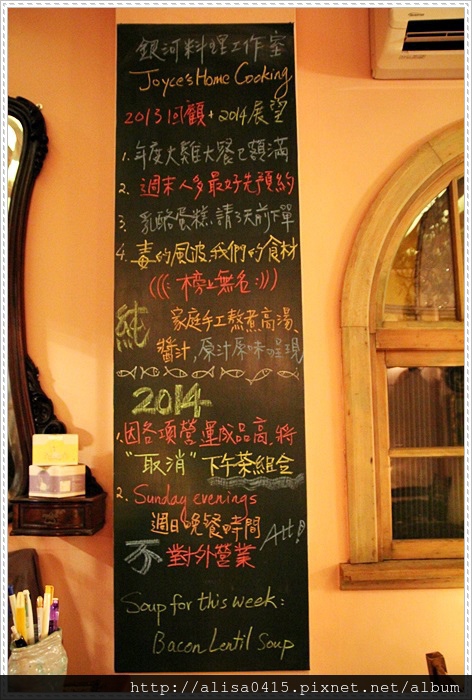 銀河料理工作室
Joyce's Home Cooking
2013回顧+2014展望
1. 年度火雞大餐已額滿
2. 週末人多最好先預約
3. 乳酪蛋糕,請3天前下單
4. 毒的風波,我們的食材
(((: 榜上無名 :)))
純 家庭手工熬煮高湯、
醬汁,原汁原味呈現
2014-
1. 因各項營運成品高,將
"取消" 下午茶組合
2. Sunday evenings
週日晚餐時間
不對外營業 Att!
Soup for this week:
Bacon Lentil Soup
http://alisa0415.pixnet.net/album